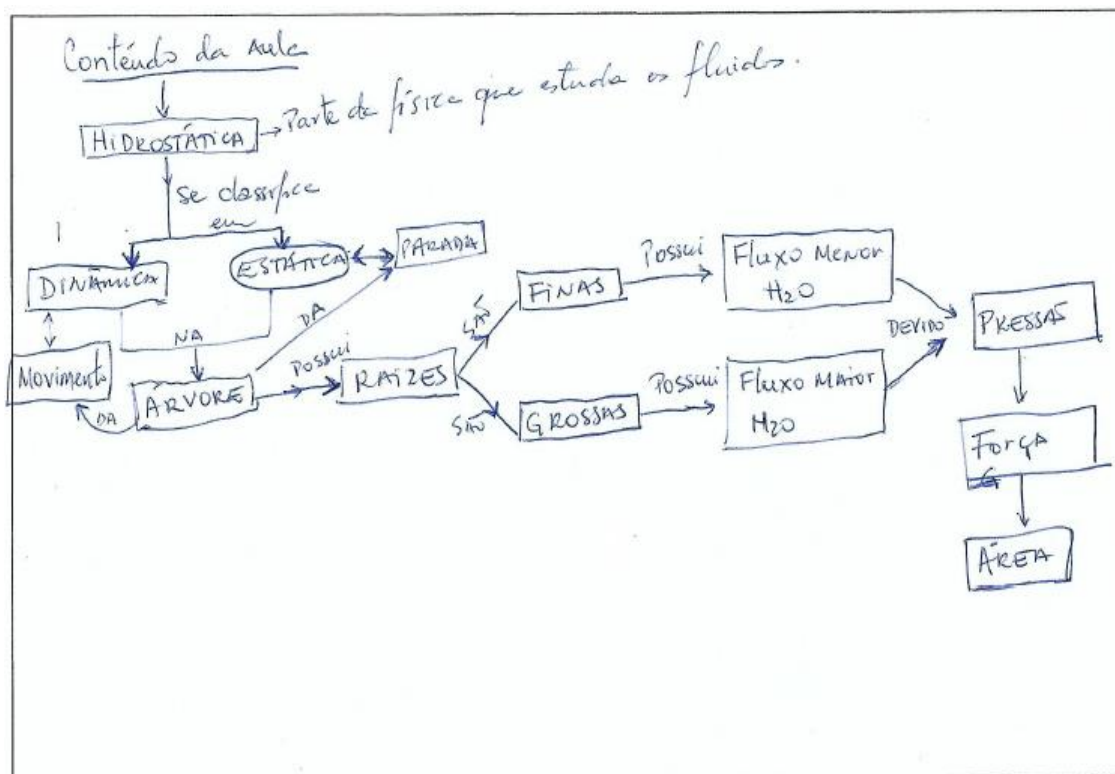 Contéudo da Aula
HIDROSTÁTICA Parte da física que estuda os fluidos.
Se classifica
em
DINÂMICA
ESTÁTICA
PARADA
NA
DA
Movimento
DA
ÁRVORE
POSSUI
RAÍZES
SÃO
FINAS
Possui
Fluxo Menor
H2O
SÃO
GROSSAS
Possui
Fluxo Maior
H2O
DEVIDO
PRESSAS
Força
ÁREA